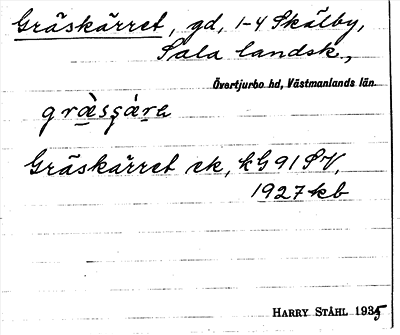 Gräskärret, gd, 1-4 Skälby,
Sala landsk.,
Övertjurbo hd, Västmanlands län.
gräsçärə
Gräskärret ek, kG 91 SV,
1927 kb
HARRY STÅHL 1935